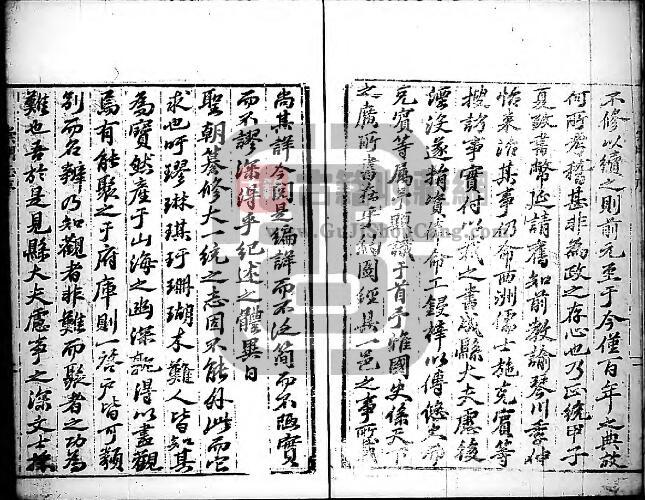 不修以續之則前元至于今僅百年之典故
何所考稽甚非為政之存心也乃正統甲子
夏政書幣延請舊知前教諭琴川季仲
怡來治其事仍命西洲儒士施克賓等
搜訪事實付以裁之書成縣大夫慮後
湮沒遂捐資命工鋟梓以傳悠久
克賓等屬予題識于首予惟國史係天下
之廣所書在乎綱圖經具一邑之事所
尚其詳今閱是編詳而不泛簡而不陋實
而不謬深得乎紀述之體異日
聖朝纂修大一統之志固不能外此而它
求也吁璆琳琪玗珊瑚木難人皆知其
為寶然產于山海之幽深孰得以盡觀
焉有能聚之于府庫則一啓戶皆可類
別而名辨乃知觀者非難而聚者之功為
難也吾於是見縣大夫慮事之深文士採
古籍收藏
www.GuJiShouCang.com